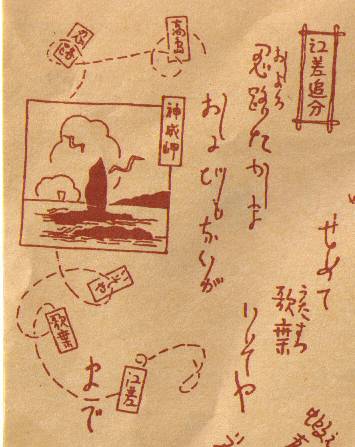 江差追分
おしょろ
忍路たかしま
およびもないが
せめて
うたすつ
歌棄
いそや
まで
高島
忍路
神威岬
歌棄
江差